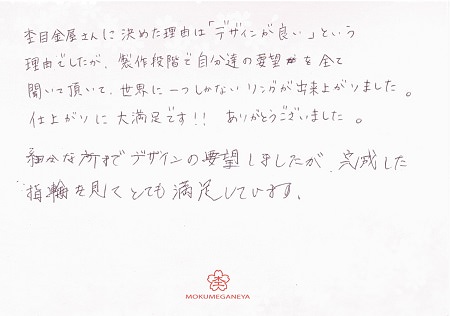 杢目金屋さんに決めた理由は「デザインが良い」という
理由でしたが、製作段階で自分達の要望を全て
聞いて頂いて、世界に一つしかないリングが出来上がりました。
仕上がりに大満足です!! ありがとうございました。
細かな所までデザインの要望しましたが、完成した
指輪を見てとても満足しています。
MOKUMEGANEYA